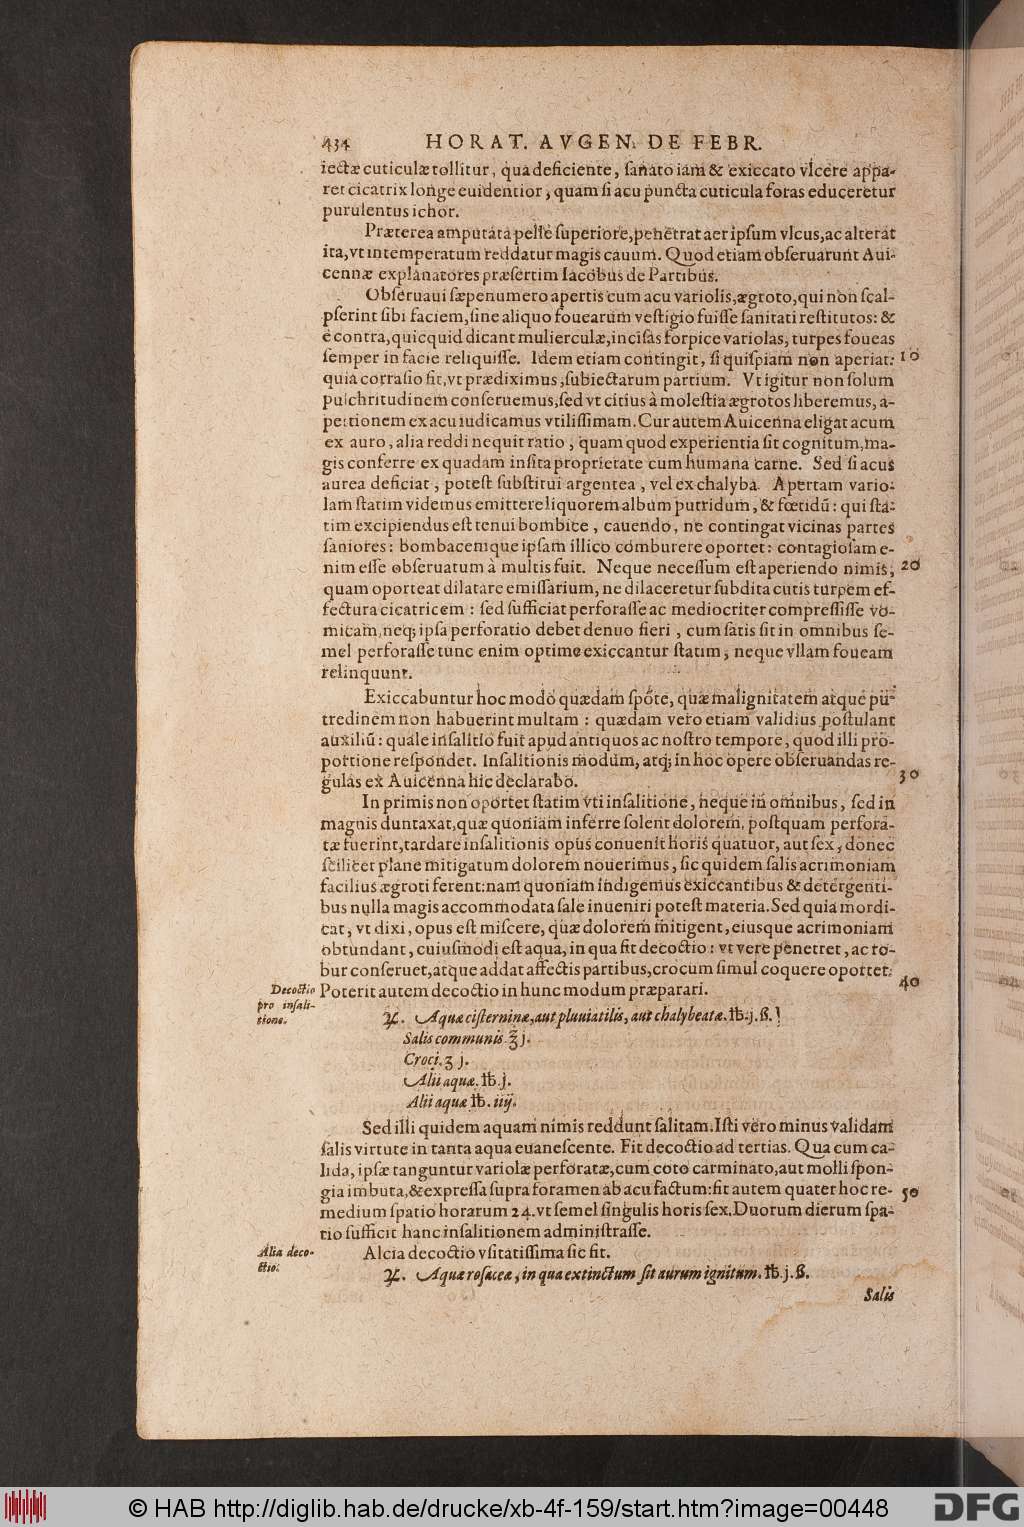 434 HORAT. AVGEN. DE FEBR.
iectæ cuticulæ tollitur, qua deficiente, ſanato iam & exiccato vlcere appa-
ret cicatrix longe euidentior, quam ſi acu puncta cuticula foras educeretur
purulentus ichor.
Præterea amputata pelle ſuperiore, penetrat aer ipſum vlcus, ac alterat
ita, vt intemperatum reddatur magis cauum. Quod etiam obſeruarunt Aui-
cennæ explanatores præſertim Iacobus de Partibus.
Obſeruaui ſæpenumero apertis cum acu variolis, ægroto, qui non ſcal-
pſerint ſibi faciem, ſine aliquo fouearum veſtigio fuiſſe ſanitati reſtitutos: &
è contra, quicquid dicant mulierculæ, inciſas forpice variolas, turpes foueas
ſemper in facie reliquiſſe. Idem etiam contingit, ſi quiſpiam non aperiat: 10
quia corraſio fit, vt prædiximus, ſubiectarum partium. Vt igitur non ſolum
pulchritudinem conſeruemus, ſed vt citius à moleſtia ægrotos liberemus, a-
pertionem ex acu iudicamus vtiliſſimam. Cur autem Auicenna eligat acum
ex auro, alia reddi nequit ratio, quam quod experientia ſit cognitum, ma-
gis conferre ex quadam inſita proprietate cum humana carne. Sed ſi acus
aurea deficiat, poteſt ſubſtitui argentea, vel ex chalyba. Apertam vario-
lam ſtatim videmus emittere liquorem album putridum, & fœtidũ: qui ſta-
tim excipiendus eſt tenui bombice, cauendo, ne contingat vicinas partes
ſaniores: bombacemque ipſam illico comburere oportet: contagioſam e-
nim eſſe obſeruatum à multis fuit. Neque neceſſum eſt aperiendo nimis, 20
quam oporteat dilatare emiſſarium, ne dilaceretur ſubdita cutis turpem ef-
fectura cicatricem: ſed ſufficiat perforaſſe ac mediocriter compreſſiſſe vo-
micam, neq; ipſa perforatio debet denuo fieri, cum ſatis ſit in omnibus ſe-
mel perforaſſe tunc enim optime exiccantur ſtatim, neque vllam foueam
relinquunt.
Exiccabuntur hoc modo quædam ſpõte, quæ malignitatem atque pu-
tredinem non habuerint multam: quædam vero etiam validius poſtulant
auxiliũ: quale inſalitio fuit apud antiquos ac noſtro tempore, quod illi pro-
portione reſpondet. Inſalitionis modum, atq; in hoc opere obſeruandas re-
gulas ex Auicenna hic declarabo. 30
In primis non oportet ſtatim vti inſalitione, neque in omnibus, ſed in
magnis duntaxat, quæ quoniam inferre ſolent dolorem, poſtquam perfora-
tæ fuerint, tardare inſalitionis opus conuenit horis quatuor, aut ſex, donec
ſcilicet plane mitigatum dolorem nouerimus, ſic quidem ſalis acrimoniam
facilius ægroti ferent: nam quoniam indigemus exiccantibus & detergenti-
bus nulla magis accommodata ſale inueniri poteſt materia. Sed quia mordi-
cat, vt dixi, opus eſt miſcere, quæ dolorem mitigent, eiusque acrimoniam
obtundant, cuiuſmodi eſt aqua, in qua fit decoctio: vt vere penetret, ac ro-
bur conſeruet, atque addat affectis partibus, crocum ſimul coquere oportet. 40
Poterit autem decoctio in hunc modum præparari.
Decoctio
pro inſali-
tione.
♃. Aquæ ciſterninæ, aut pluuiatilis, aut chalybeatæ. ℔. j. ß.
Salis communis. ℥ j.
Croci. ʒ j.
Alii aquæ. ℔. j.
Alii aquæ ℔. iiij.
Sed illi quidem aquam nimis reddunt ſalitam. Iſti vero minus validam
ſalis virtute in tanta aqua euaneſcente. Fit decoctio ad tertias. Qua cum ca-
lida, ipſæ tanguntur variolæ perforatæ, cum coto carminato, aut molli ſpon-
gia imbuta, & expreſſa ſupra foramen ab acu factum: fit autem quater hoc re- 50
medium ſpatio horarum 24. vt ſemel ſingulis horis ſex. Duorum dierum ſpa-
tio ſufficit hanc inſalitionem adminiſtraſſe.
Alia deco-
ctio.
Alcia decoctio vſitatiſſima ſic fit.
♃. Aquæ roſaceæ, in qua extinctum ſit aurum ignitum. ℔. j. ß.
Salis
© HAB http://diglib.hab.de/drucke/xb-4f-159/start.htm?image=00448
DFG